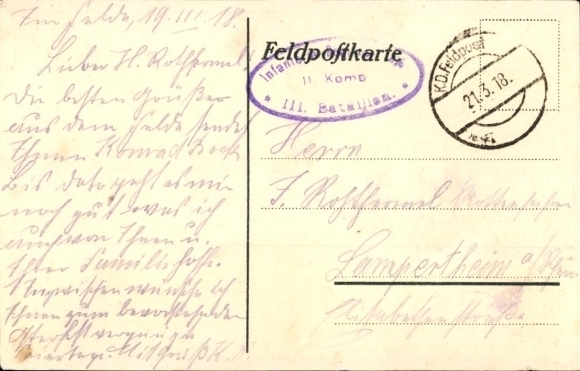 Im Felde, 19.III.18.
Lieber H. Rothermel
Die besten Grüße
aus dem Felde sendet
Ihnen Konrad
bis dato geht es mir
noch gut was ich
auch von Ihnen u.
Ihrer Familie hoffe.
Inzwischen wünsche ich
Ihnen zum bevorstehenden
Mit Gruß K.
Feldpostkarte
Infanterie
11. Komp
III. Bataillon.
K.D. Feldpost
21.3.18.
Herrn
J. Rothermel
Lampertheim a/Rhein
Elisabethenstraße